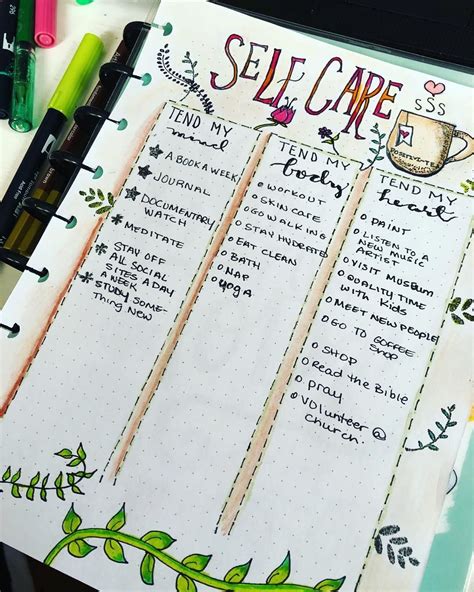 SELF CARE
TEND MY
mind
A BOOK A WEEK
JOURNAL
DOCUMENTARY
WATCH
MEDITATE
STAY OFF
ALL SOCIAL
SITES A DAY
A WEEK
STUDY SOME-
THING NEW
TEND MY
body
WORKOUT
SKIN CARE
GO WALKING
STAY HYDRATED
EAT CLEAN
BATH
NAP
YOGA
SSS
TEND MY
heart
PAINT
LISTEN TO A
NEW MUSIC
ARTIST
VISIT MUSEUM
QUALITY TIME
with Kids
MEET NEW PEOPLE
GO TO COFFEE
SHOP
SHOP
Read the Bible
pray
VOlunteer @
Church.